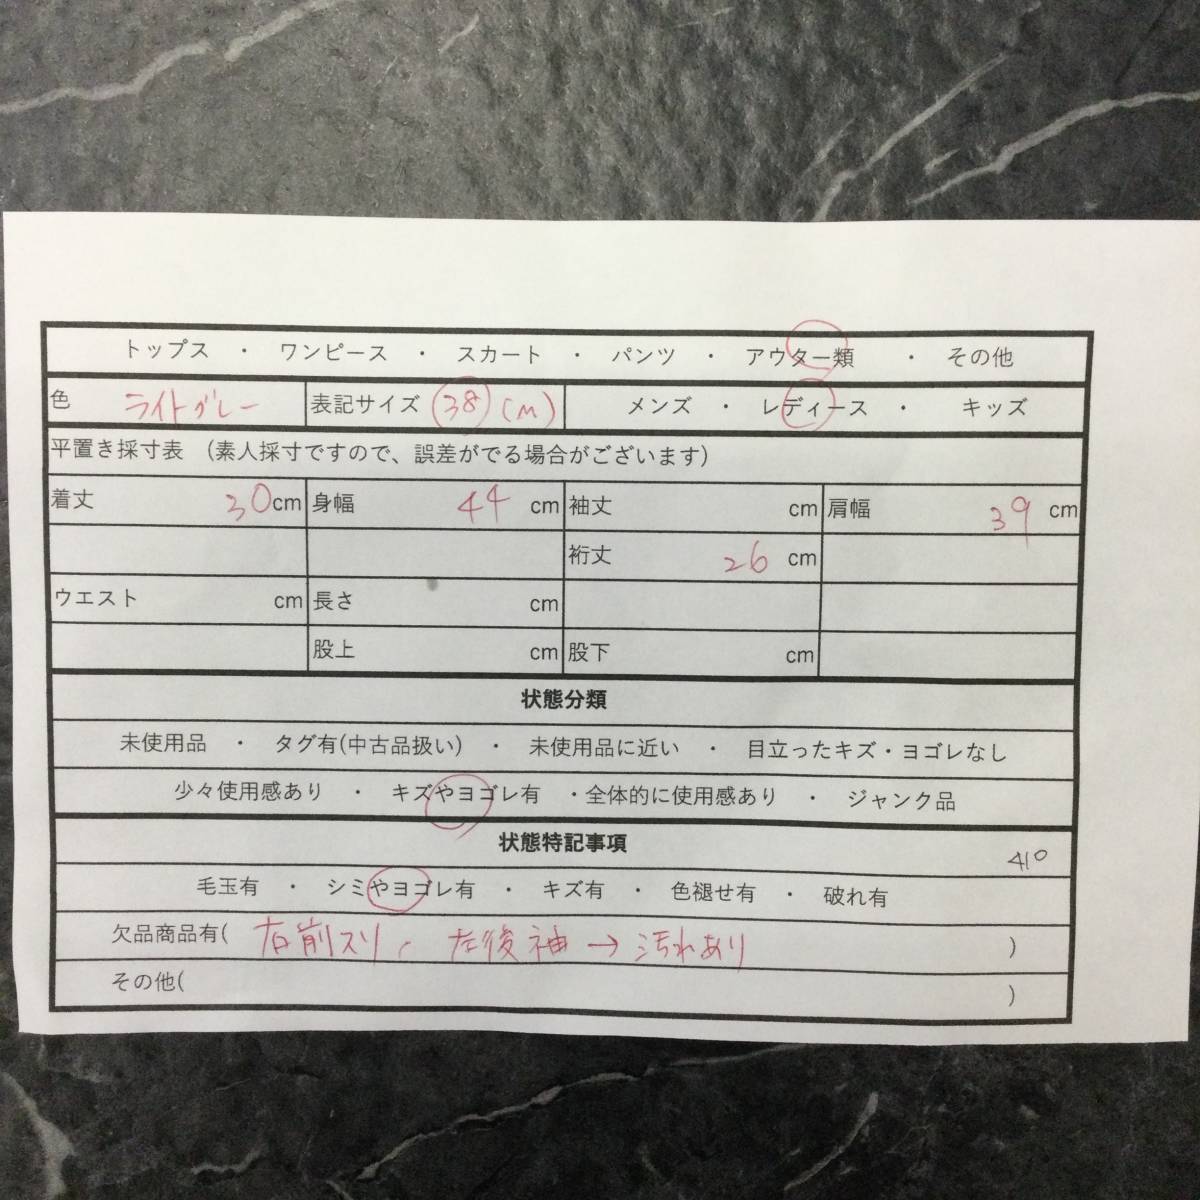 トップス ・ ワンピース ・ スカート ・ パンツ ・ アウター類 ・ その他
色 ライトグレー 表記サイズ 38 (M) メンズ ・ レディース ・ キッズ
平置き採寸表 (素人採寸ですので、誤差がでる場合がございます)
着丈 30cm 身幅 44 cm 袖丈 cm 肩幅 39 cm
裄丈 26 cm
ウエスト cm 長さ cm
股上 cm 股下 cm
状態分類
未使用品 ・ タグ有(中古品扱い) ・ 未使用品に近い ・ 目立ったキズ・ヨゴレなし
少々使用感あり ・ キズやヨゴレ有 ・全体的に使用感あり ・ ジャンク品
状態特記事項
410
毛玉有 ・ シミやヨゴレ有 ・ キズ有 ・ 色褪せ有 ・ 破れ有
欠品商品有( 右前スリ、左後袖→汚れあり )
その他( )